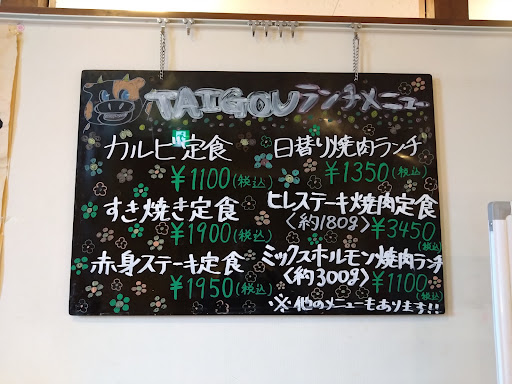 TAIGOU ランチメニュー
カルビ定食
¥1100(税込)
すき焼き定食
¥1900(税込)
赤身ステーキ定食
¥1950(税込)
日替り焼肉ランチ
¥1350(税込)
ヒレステーキ焼肉定食
〈約180g〉¥3450(税込)
ミックスホルモン焼肉ランチ
〈約300g〉¥1100(税込)
※他のメニューもあります!!